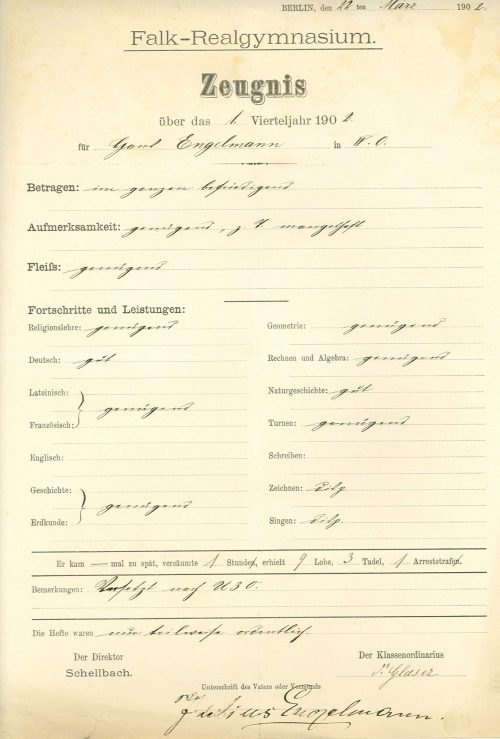 BERLIN, den 22ten März 1902.
Falk-Realgymnasium.
Zeugnis
über das 1. Vierteljahr 1902.
für Engelmann in IV. O.
Betragen: im ganzen befriedigend
Aufmerksamkeit: genügend, z. T. mangelhaft
Fleiß: genügend
Fortschritte und Leistungen:
Religionslehre: genügend
Deutsch: gut
Lateinisch:
Französisch: genügend
Englisch:
Geschichte:
Erdkunde: genügend
Geometrie: genügend
Rechnen und Algebra: genügend
Naturgeschichte: gut
Turnen: genügend
Schreiben:
Zeichnen: disp.
Singen: disp.
Er kam — mal zu spät, versäumte 1 Stunde, erhielt 9 Lobe, 3 Tadel, 1 Arreststrafe.
Bemerkungen: Versetzt nach U 3 O.
Die Hefte waren nur teilweise ordentlich.
Der Direktor
Schellbach.
Der Klassenordinarius
Dr. Glaser
Unterschrift des Vaters oder Vormunds
Julius Engelmann.